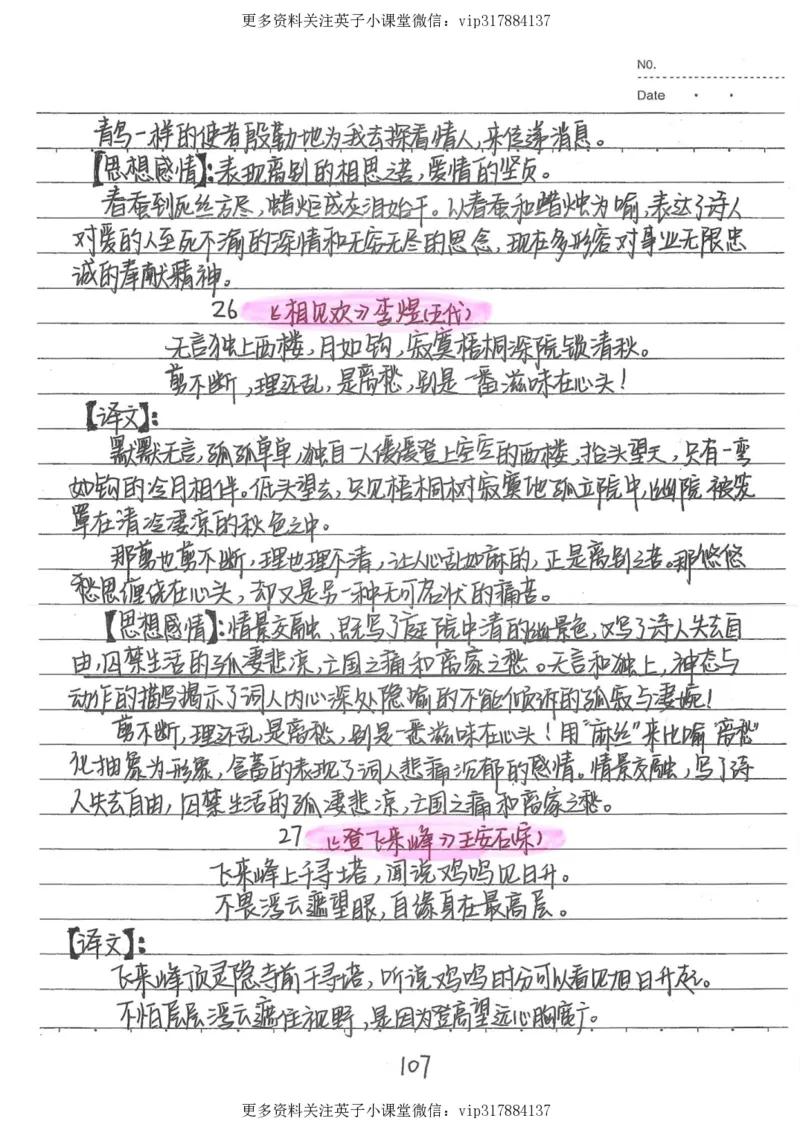 更多资料关注英子小课堂微信：vip317884137
NO.
Date
青鸟一样的使者殷勤地为我去探看情人，来信递消息。
【思想感情】：表现离别的相思之苦，爱情的坚贞。
春蚕到死丝方尽，蜡炬成灰泪始干。以春蚕和蜡烛为喻，表达了诗人
对爱的人至死不渝的深情和无穷无尽的思念，现在多形容对事业无限忠
诚的奉献精神。
26 《相见欢》李煜(五代)
无言独上西楼，月如钩，寂寞梧桐深院锁清秋。
剪不断，理还乱，是离愁，别是一番滋味在心头！
【译文】：
默默无言，孤孤单单，独自一人缓缓登上空空的西楼，抬头望天，只有一弯
如钩的冷月相伴。低头望去，只见梧桐树寂寞地孤立院中，幽院被笼
罩在清冷凄凉的秋色之中。
那剪也剪不断，理也理不清，让人心乱如麻的，正是离别之苦。那悠悠
愁思缠绕在心头，却又是另一种无可名状的痛苦。
【思想感情】：情景交融，既写了庭院中清的幽景色，又写了诗人失去自
由，囚禁生活的孤凄悲凉，亡国之痛和离家之愁。无言和独上，神态与
动作的描写揭示了词人内心深处隐喻的不能倾诉的孤寂与凄婉！
剪不断，理还乱是离愁，别是一番滋味在心头！用"麻丝"来比喻"离愁"
化抽象为形象，含蓄的表现了词人悲痛沉郁的感情。情景交融，写了诗
人失去自由，囚禁生活的孤凄悲凉，亡国之痛和离家之愁。
27 《登飞来峰》王安石(宋)
飞来峰上千寻塔，闻说鸡鸣见日升。
不畏浮云遮望眼，自缘身在最高层。
【译文】：
飞来峰顶灵隐寺前千寻塔，听说鸡鸣时分可以看见旭日升起。
不怕层层浮云遮住视野，是因为登高望远心胸宽广。
107
更多资料关注英子小课堂微信：vip317884137